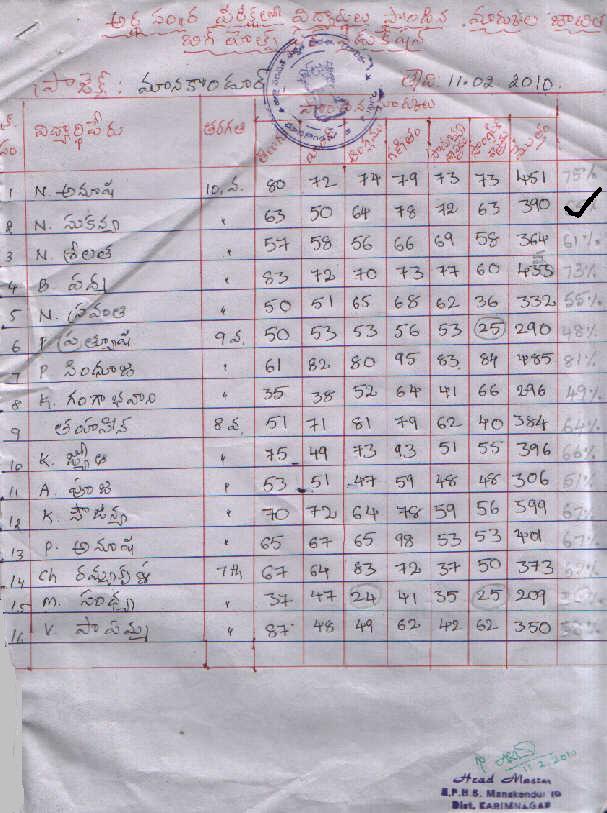 అర్ధ సంవత్సర పరీక్షలలో విద్యార్థులు సాధించిన మార్కుల జాబితా
ప్రాజెక్ట్ : మానకొండూర్ తేది: 11.02 2010.
విద్యార్థి పేరు తరగతి గణితం
1 N. అనూష 10.వ. 80 72 74 79 73 73 451 75%
2 N. సుకన్యా " 63 50 64 78 72 63 390
3 N. శ్రీలత " 57 58 56 66 69 58 364 61%
4 B. " 83 72 70 73 77 60 433 73%
5 N. " 50 51 65 68 62 36 332 55%
6 ప్రత్యూష 9వ. 50 53 53 56 53 25 290 48%
7 P. సింధూజ " 61 82 80 95 83 84 485 81%
8 K. గంగాభవాని " 35 38 52 64 41 66 296 49%
9 8వ. 51 71 81 79 62 40 384 64%
10 K. " 75 49 73 93 51 55 396 66%
11 A. పూజ " 53 51 47 59 48 48 306 51%
12 K. సౌజన్య " 70 72 64 78 59 56 399 67%
13 P. అనూష " 65 67 65 98 53 53 401 67%
14 Ch 7th 67 64 83 72 37 50 373 62%
15 M. సంధ్య " 37 47 24 41 35 25 209
16 V. " 87 48 49 62 42 62 350
11.2.2010
Head Master
Z.P.H.S. Manakondur
Dist. KARIMNAGAR